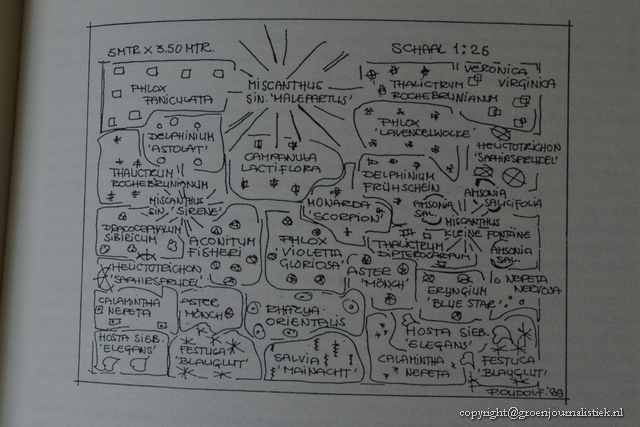 5MTR X 3.50 MTR.
SCHAAL 1:25
PHLOX
PANICULATA
MISCANTHUS
SIN. 'MALEPARTUS'
THALICTRUM
ROCHEBRUNIANUM
VERONICA
VIRGINICA
DELPHINIUM
'ASTOLAT'
PHLOX
'LAVENDELWOLKE'
HELICTOTRICHON
'SAPHIRSPRUDEL'
THALICTRUM
ROCHEBRUNIANUM
CAMPANULA
LACTIFLORA
DELPHINIUM
FRÜHSCHEIN
MISCANTHUS
SIN. 'SIRENE'
MONARDA
'SCORPION'
AMSONIA
SALICIFOLIA
AMSONIA
SAL.
MISCANTHUS
KLEINE FONTÄNE
DRACOCEPHALUM
SIBIRICUM
ACONITUM
FISHERI
PHLOX
'VIOLETTA
GLORIOSA'
THALICTRUM
DIPTEROCARPUM
AMSONIA
SAL.
HELICTOTRICHON
'SAPHIRSPRUDEL'
ASTER
'MÖNCH'
ERYNGIUM
'BLUE STAR'
NEPETA
NERVOSA
CALAMINTHA
NEPETA
ASTER
MÖNCH
RHAZYA
ORIENTALIS
HOSTA SIEB.
'ELEGANS'
HOSTA SIEB.
'ELEGANS'
FESTUCA
'BLAUGLUT'
SALVIA
'MAINACHT'
CALAMINTHA
NEPETA
FESTUCA
'BLAUGLUT'
P.OUDOLF '88
copyright@groenjournalistiek.nl